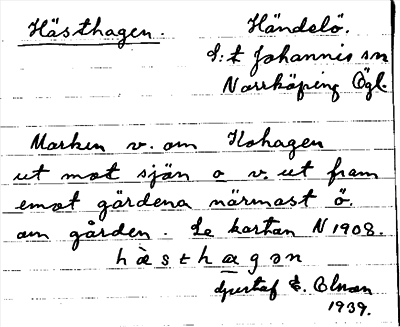 Hästhagen. Händelö.
S:t Johannis sn
Norrköping Ögl.
Marken v. om Kohagen
ut mot sjön o v. ut fram
emot gärdena närmast ö.
om gården. Se kartan N 1908.
hàsthagən
Gustaf E. Olson
1939.